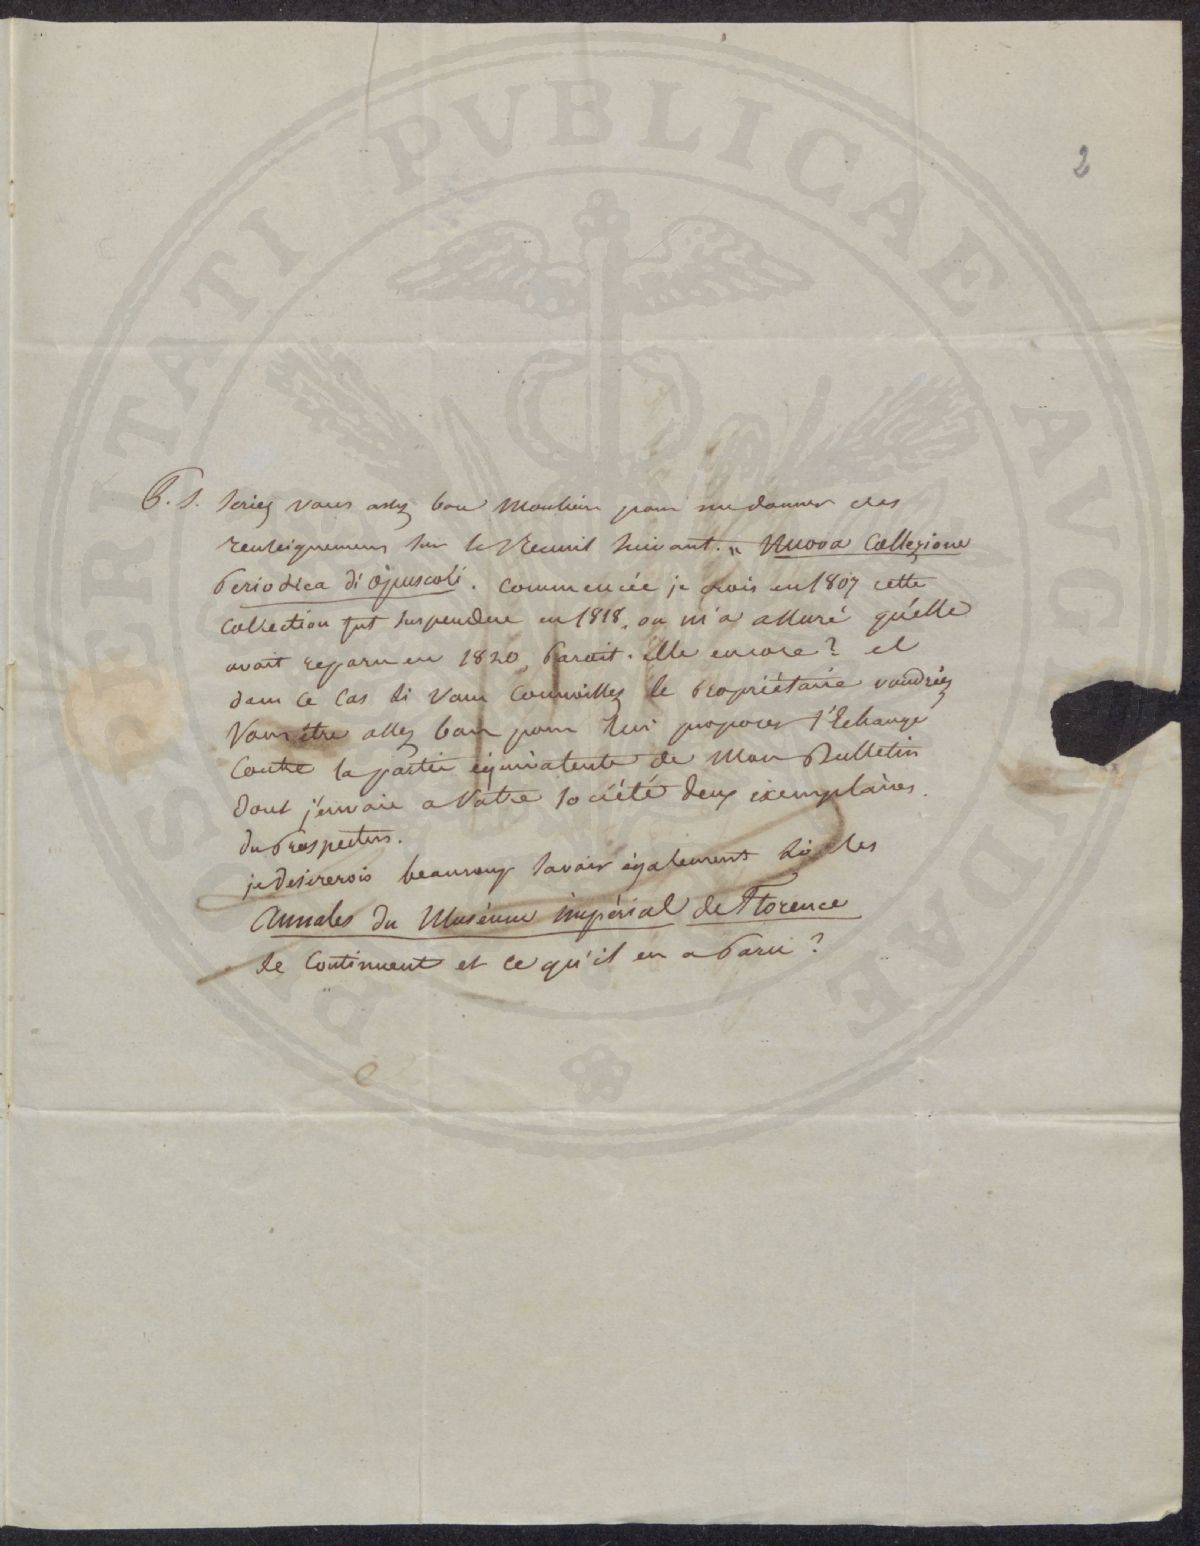 2
P. S. Seriez vous assez bon Monsieur pour me donner des
renseignemens sur le Recueil suivant. " Nuova Collezione
Periodica di Opuscoli. commencée je crois en 1807 cette
collection fut suspendue en 1818. on m'a assuré qu'elle
avait reparu en 1820, Parait-elle encore? et
dans ce cas si vous connoissez le propriétaire voudriez
vous être assez bon pour lui proposer l'Echange
contre la partie équivalente de Mon Bulletin
dont j'envoie a Votre Société deux exemplaires.
du Prospectus.
je desirerois beaucoup savoir également si les
Annales du Muséum impérial de Florence
se continuent et ce qu'il en a Paru?
PROSPERITATI PVBLICAE AVGENDAE